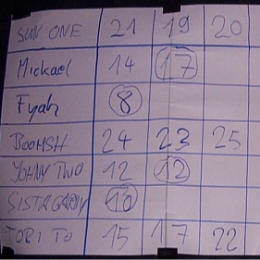 SUN ONE 21 19 20
Mickael 14 17
Fyah 8
BOOMSH 24 23 25
JOHNY TWO 12 12
10
TORI TO 15 17 22